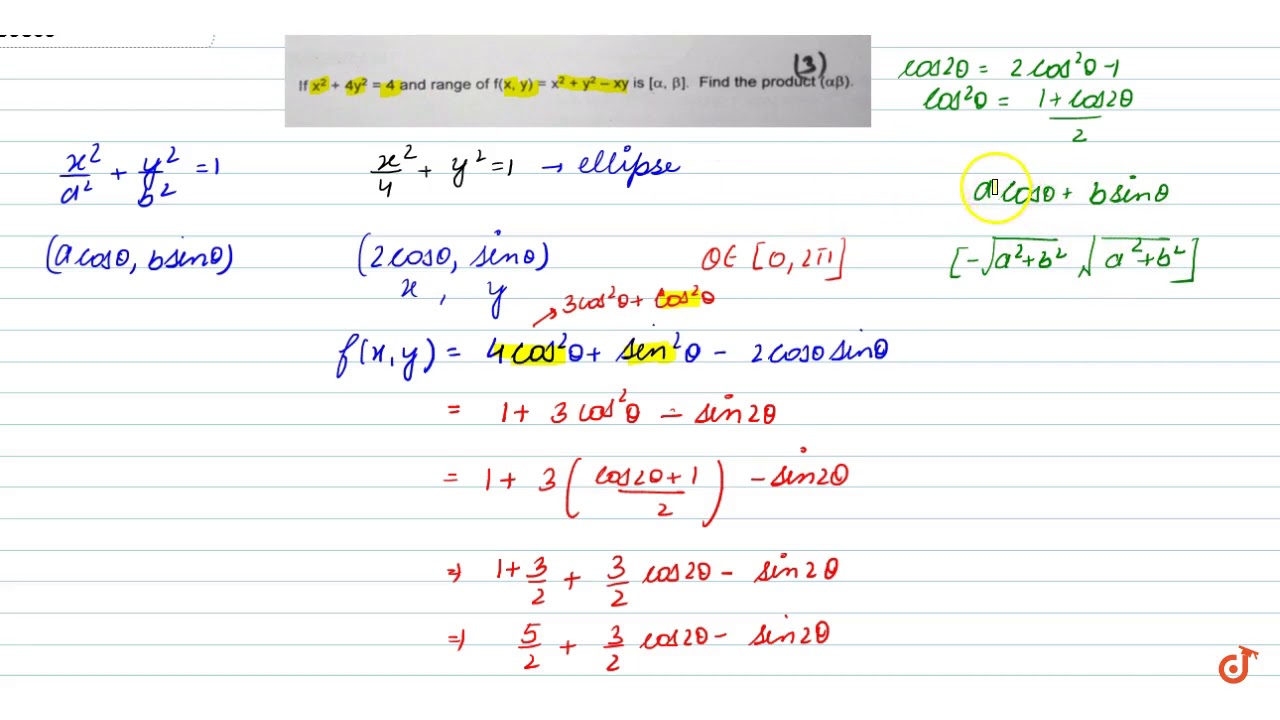 (3)
If x² + 4y² = 4 and range of f(x, y) = x² + y² – xy is [α, β]. Find the product (αβ).
cos2θ = 2cos²θ-1
cos²θ = 1+cos2θ/2
x²/a² + y²/b² = 1
x²/4 + y² = 1 → ellipse
acosθ + bsinθ
(acosθ, bsinθ)
(2cosθ, sinθ)
θ∈ [0, 2π]
[-√a²+b², √a²+b²]
x , y
3cos²θ + cos²θ
f(x,y) = 4cos²θ + sin²θ - 2cosθ sinθ
= 1+ 3cos²θ - sin2θ
= 1+ 3(cos2θ+1/2) - sin2θ
⇒ 1+3/2 + 3/2 cos2θ - sin2θ
⇒ 5/2 + 3/2 cos2θ - sin2θ